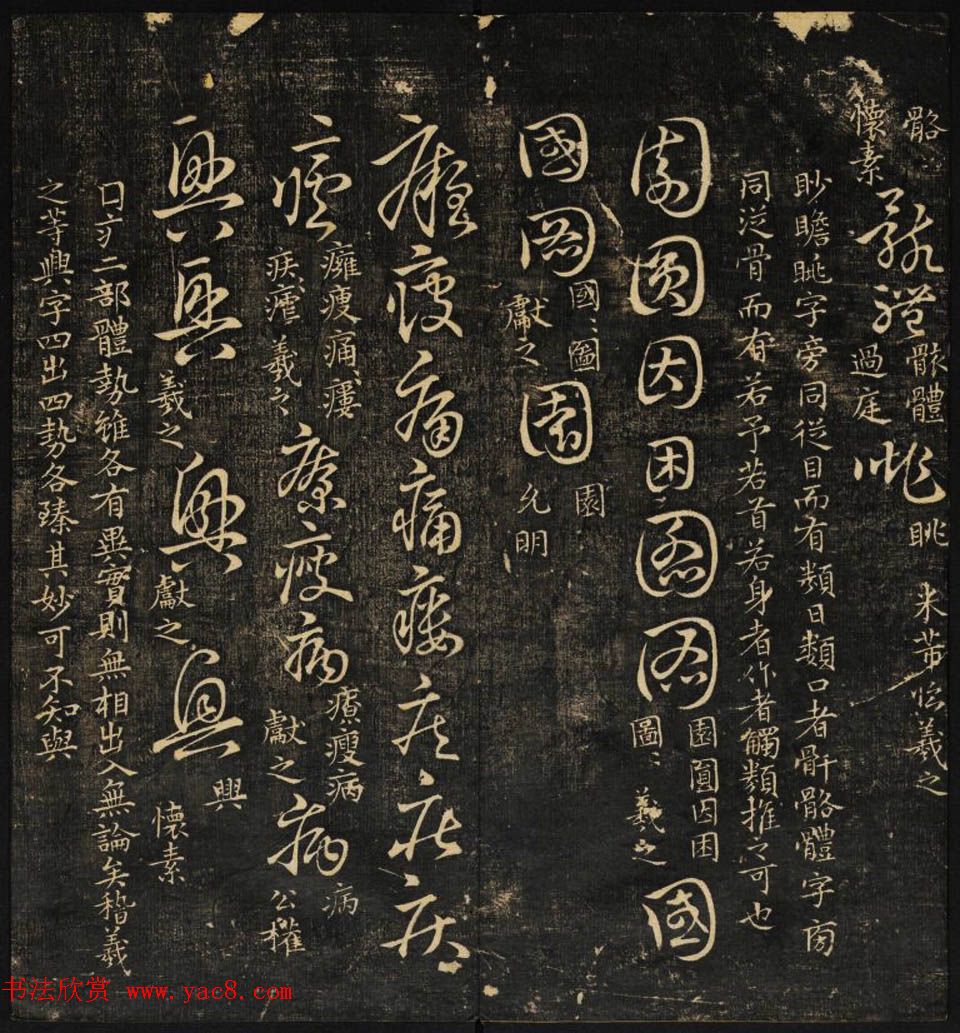 骼〻
懷素
骸體
骸體
過庭
眺
眺
米芾臨羲之
眇瞻眺字旁同從目而有類日類口者骭骼體字旁
同從骨而有若予若首若身者作者觸類推之可也
園圓因困圖圖
園圓因困
圖〻
羲之
國
國圖
國〻圖
獻之
園
園
允明
癰瘦痛痛瘻疾疾疾
瘧
癰瘦痛〻瘻
疾〻瘧
羲之
療瘦病
療瘦病
獻之
病
病
公權
興興
羲之
興
獻之
興
興
懷素
口疒二部體勢雖各有異實則無相出入無論矣稽羲
之等興字四出四勢各臻其妙可不知與
书法欣赏 www.yac8.com